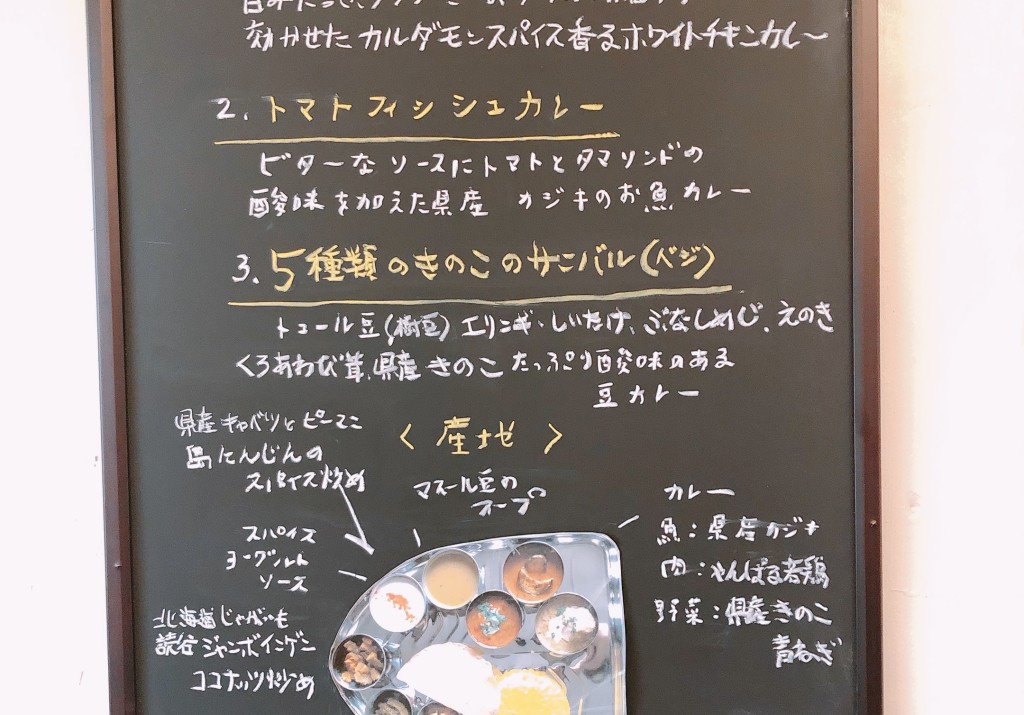 効かせた カルダモンスパイス香るホワイトチキンカレー
2. トマトフィッシュカレー
ビターな ソースにトマトとタマリンドの
酸味を加えた県産 カジキのお魚カレー
3. 5種類のきのこのサンバル(ベジ)
トゥール豆(樹豆) エリンギ・しいたけ、ぶなしめじ、えのき
くろあわび茸、県産きのこ たっぷり酸味のある
豆カレー
〈 産地 〉
県産キャベツとピーマン
島にんじんの
スパイス炒め
マスール豆の
スープ
スパイス
ヨーグルト
ソース
北海道じゃがいも
読谷ジャンボインゲン
ココナッツ炒め
カレー
魚：県産カジキ
肉：やんばる若鶏
野菜：県産きのこ
青ねぎ